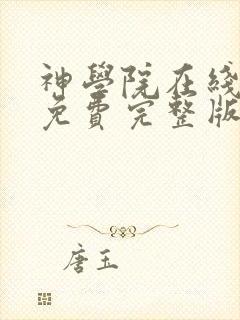 神學院在綫
免費完整版
唐玉